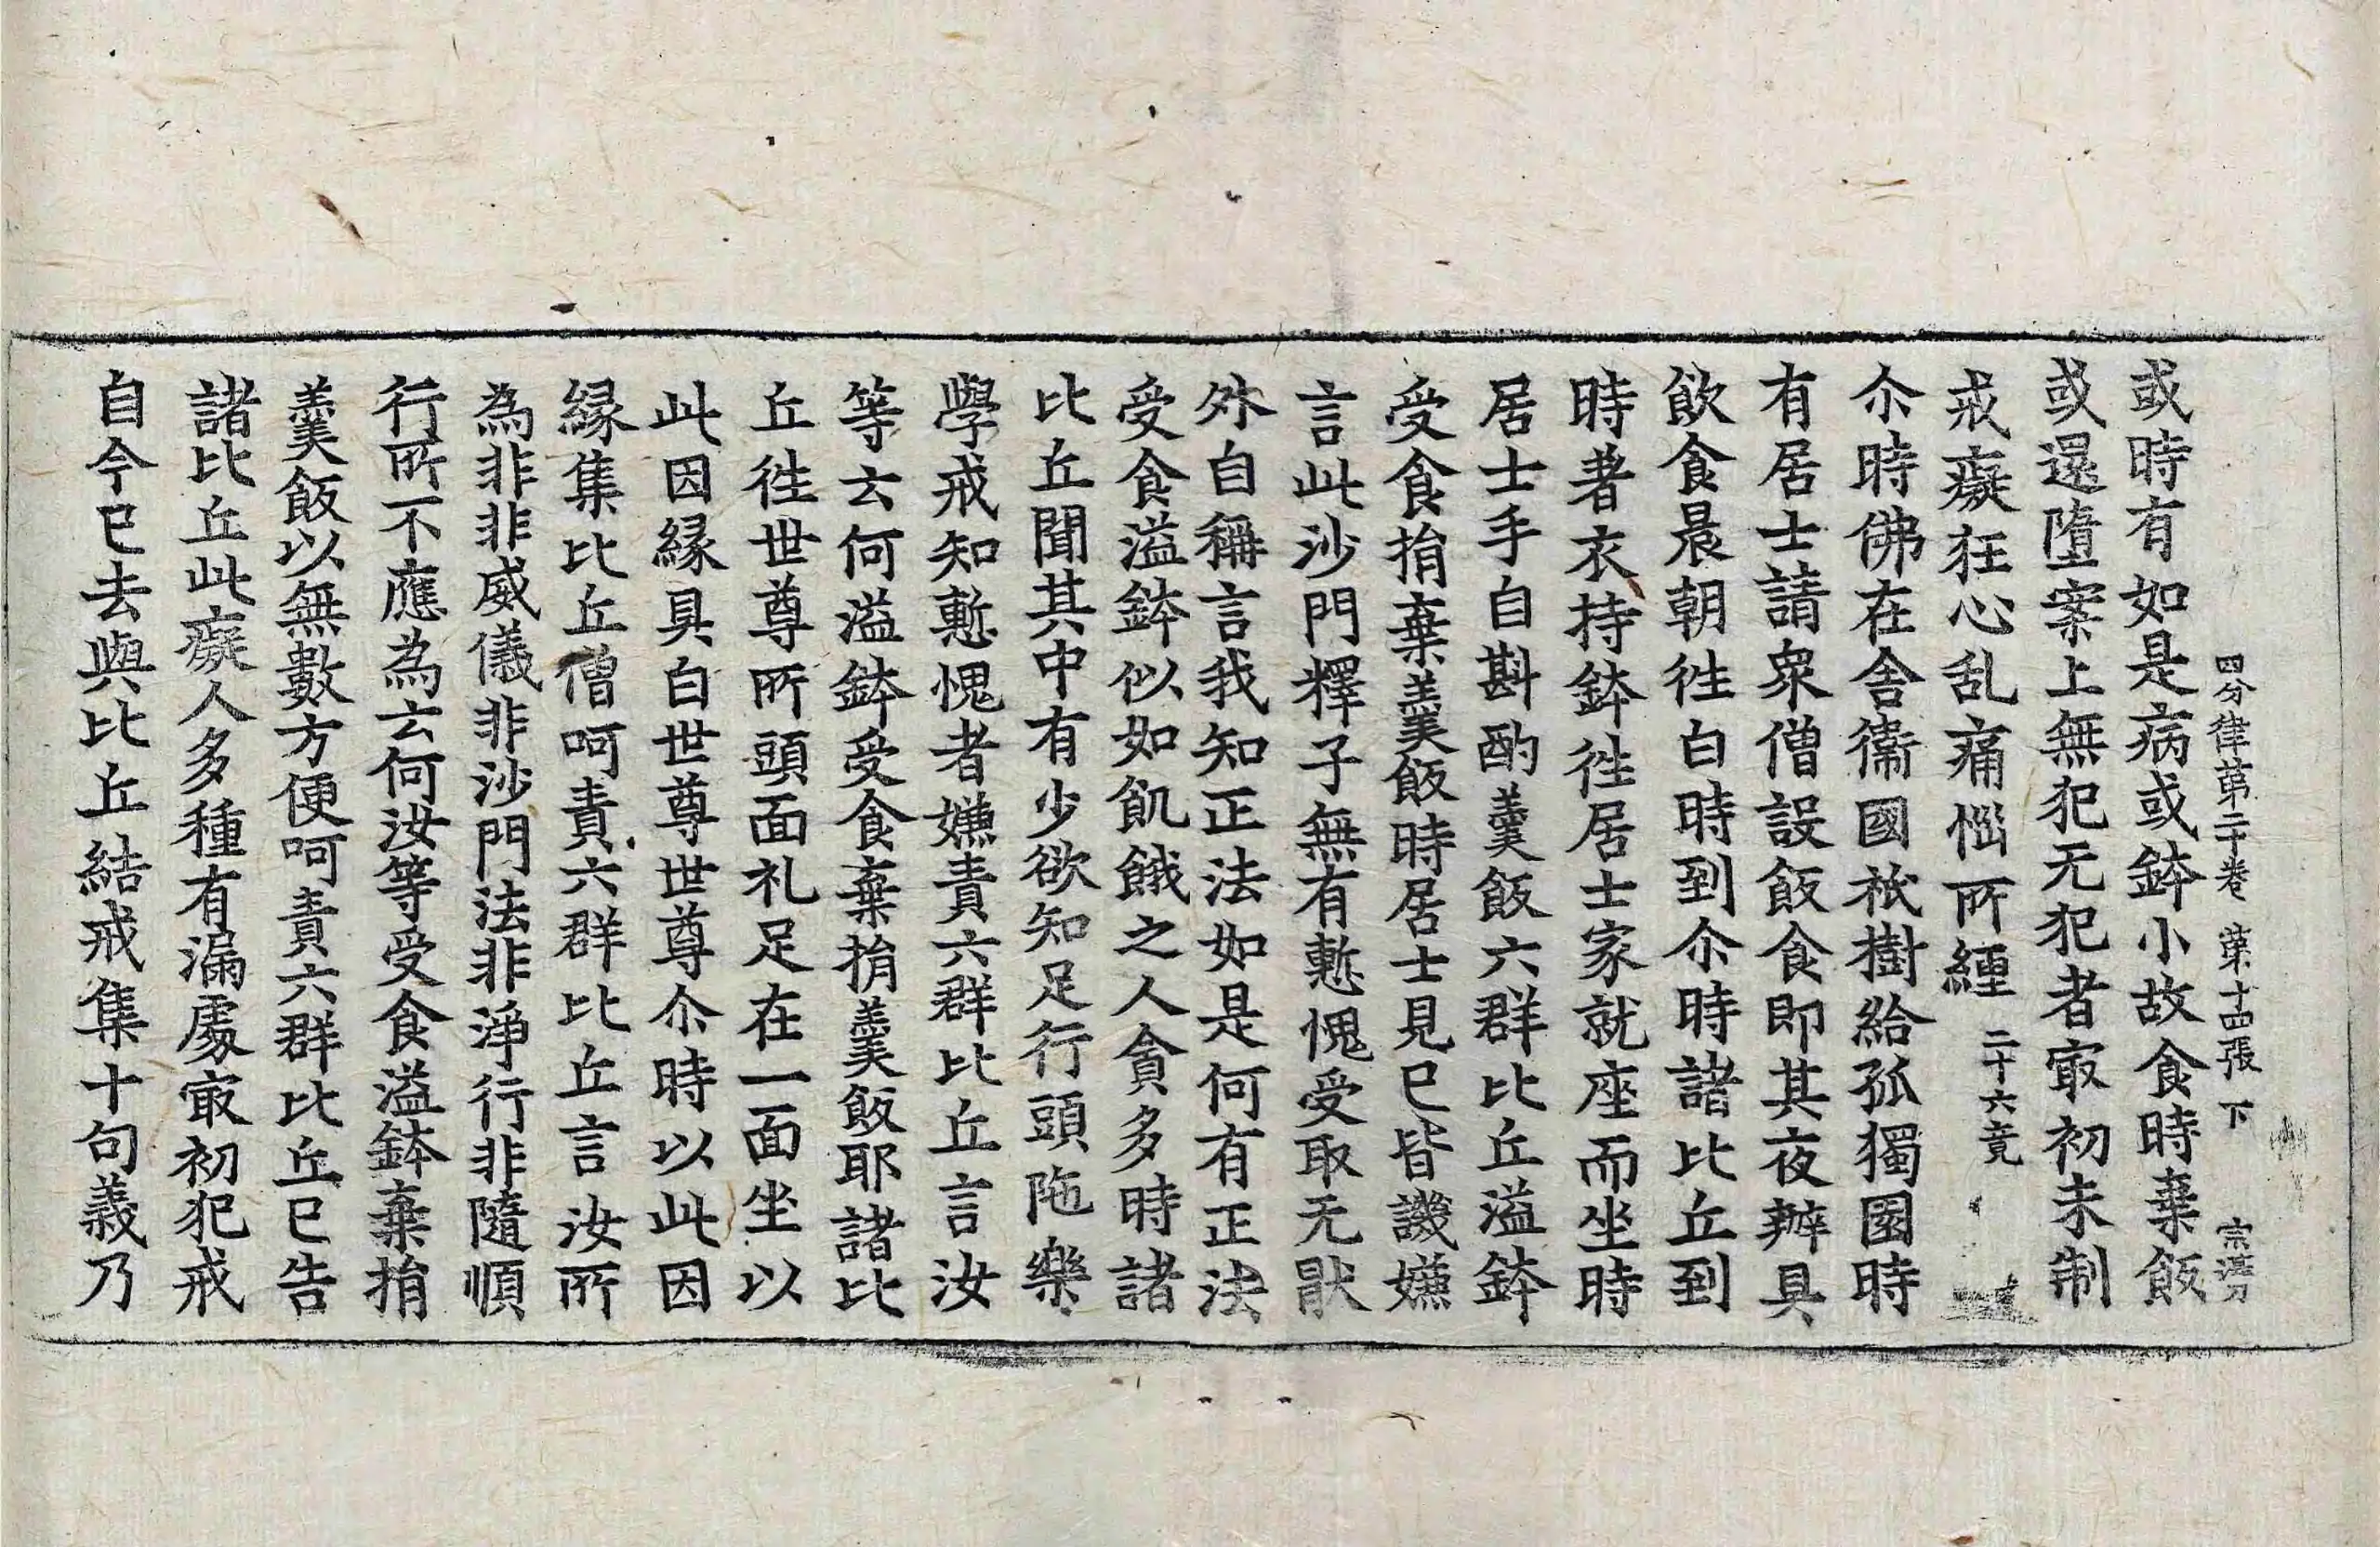 四分律第二十卷 第十四張 下
或時有如是病或鉢小故食時棄飯
或還墮案上無犯无犯者㝡初未制
戒癡狂心乱痛惱所纏 二十六竟
尒時佛在舍衞國祇樹給孤獨園時
有居士請眾僧設飯食即其夜辦具
飲食晨朝徃白時到尒時諸比丘到
時著衣持鉢徃居士家就座而坐時
居士手自斟酌羹飯六群比丘溢鉢
受食捐棄羹飯時居士見已皆譏嫌
言此沙門釋子無有慙愧受取无猒
外自稱言我知正法如是何有正法
受食溢鉢似如飢餓之人貪多時諸
比丘聞其中有少欲知足行頭陁樂
學戒知慙愧者嫌責六群比丘言汝
等云何溢鉢受食棄捐羹飯耶諸比
丘徃世尊所頭面礼足在一面坐以
此因緣具白世尊世尊尒時以此因
緣集比丘僧呵責六群比丘言汝所
為非非威儀非沙門法非淨行非隨順
行所不應為云何汝等受食溢鉢棄捐
羹飯以無數方便呵責六群比丘已告
諸比丘此癡人多種有漏處㝡初犯戒
自今已去與比丘結戒集十句義乃